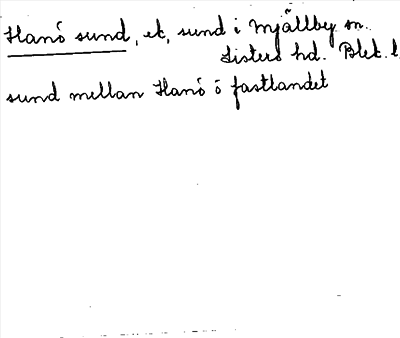 Hanö sund, et, sund i Mjällby sn.
Listers hd. Blek. l
sund mellan Hanö o fastlandet